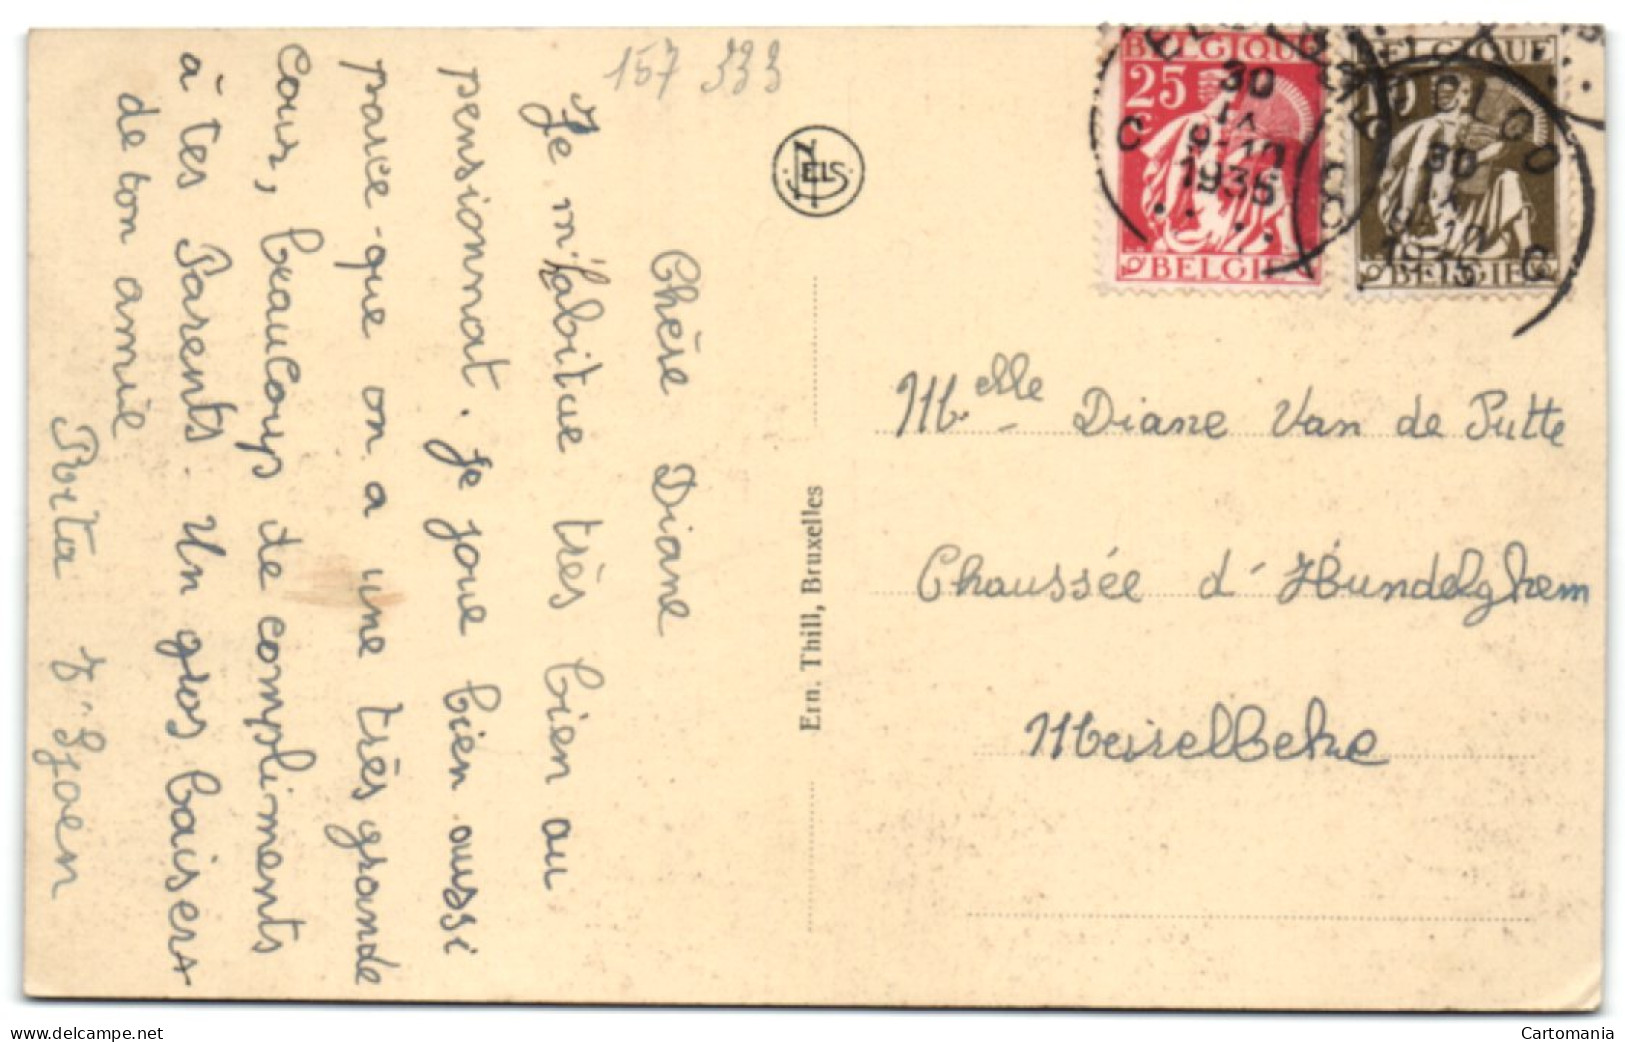 157 333
Chère Diane
Je m'habitue très bien au
pensionnat. Je joue bien oussi
parce-que on a une très grande
cour, beaucoup de compliments
à tes Parents. Un gros baisers
de ton amie
Rita
NELS
Ern. Thill, Bruxelles
BELGIQUE
25
BELGIE
30
IX
1935
BELGIQUE
10
BELGIE
EECLOO
30
IX
1935
Melle Diane Van de Putte
Chaussée d'Hundelghem
Meirelbeke
delcampe.net
Cartomania